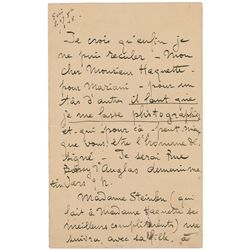 Je crois qu'enfin je
ne puis reculer – Mon
cher Monsieur Haquette –
pour Mariani – pour un
tas d'autres il faut que
je me fasse photographier
et qui pour ça peut mieux
que vous être l'homme dé-
signé – Je serai Rue
Boissy d'Anglas demain ma-
tin vers
Madame Steinlen (qui
fait à Madame Haquette ses
meilleurs compliments) me
suivra avec sa fille, à